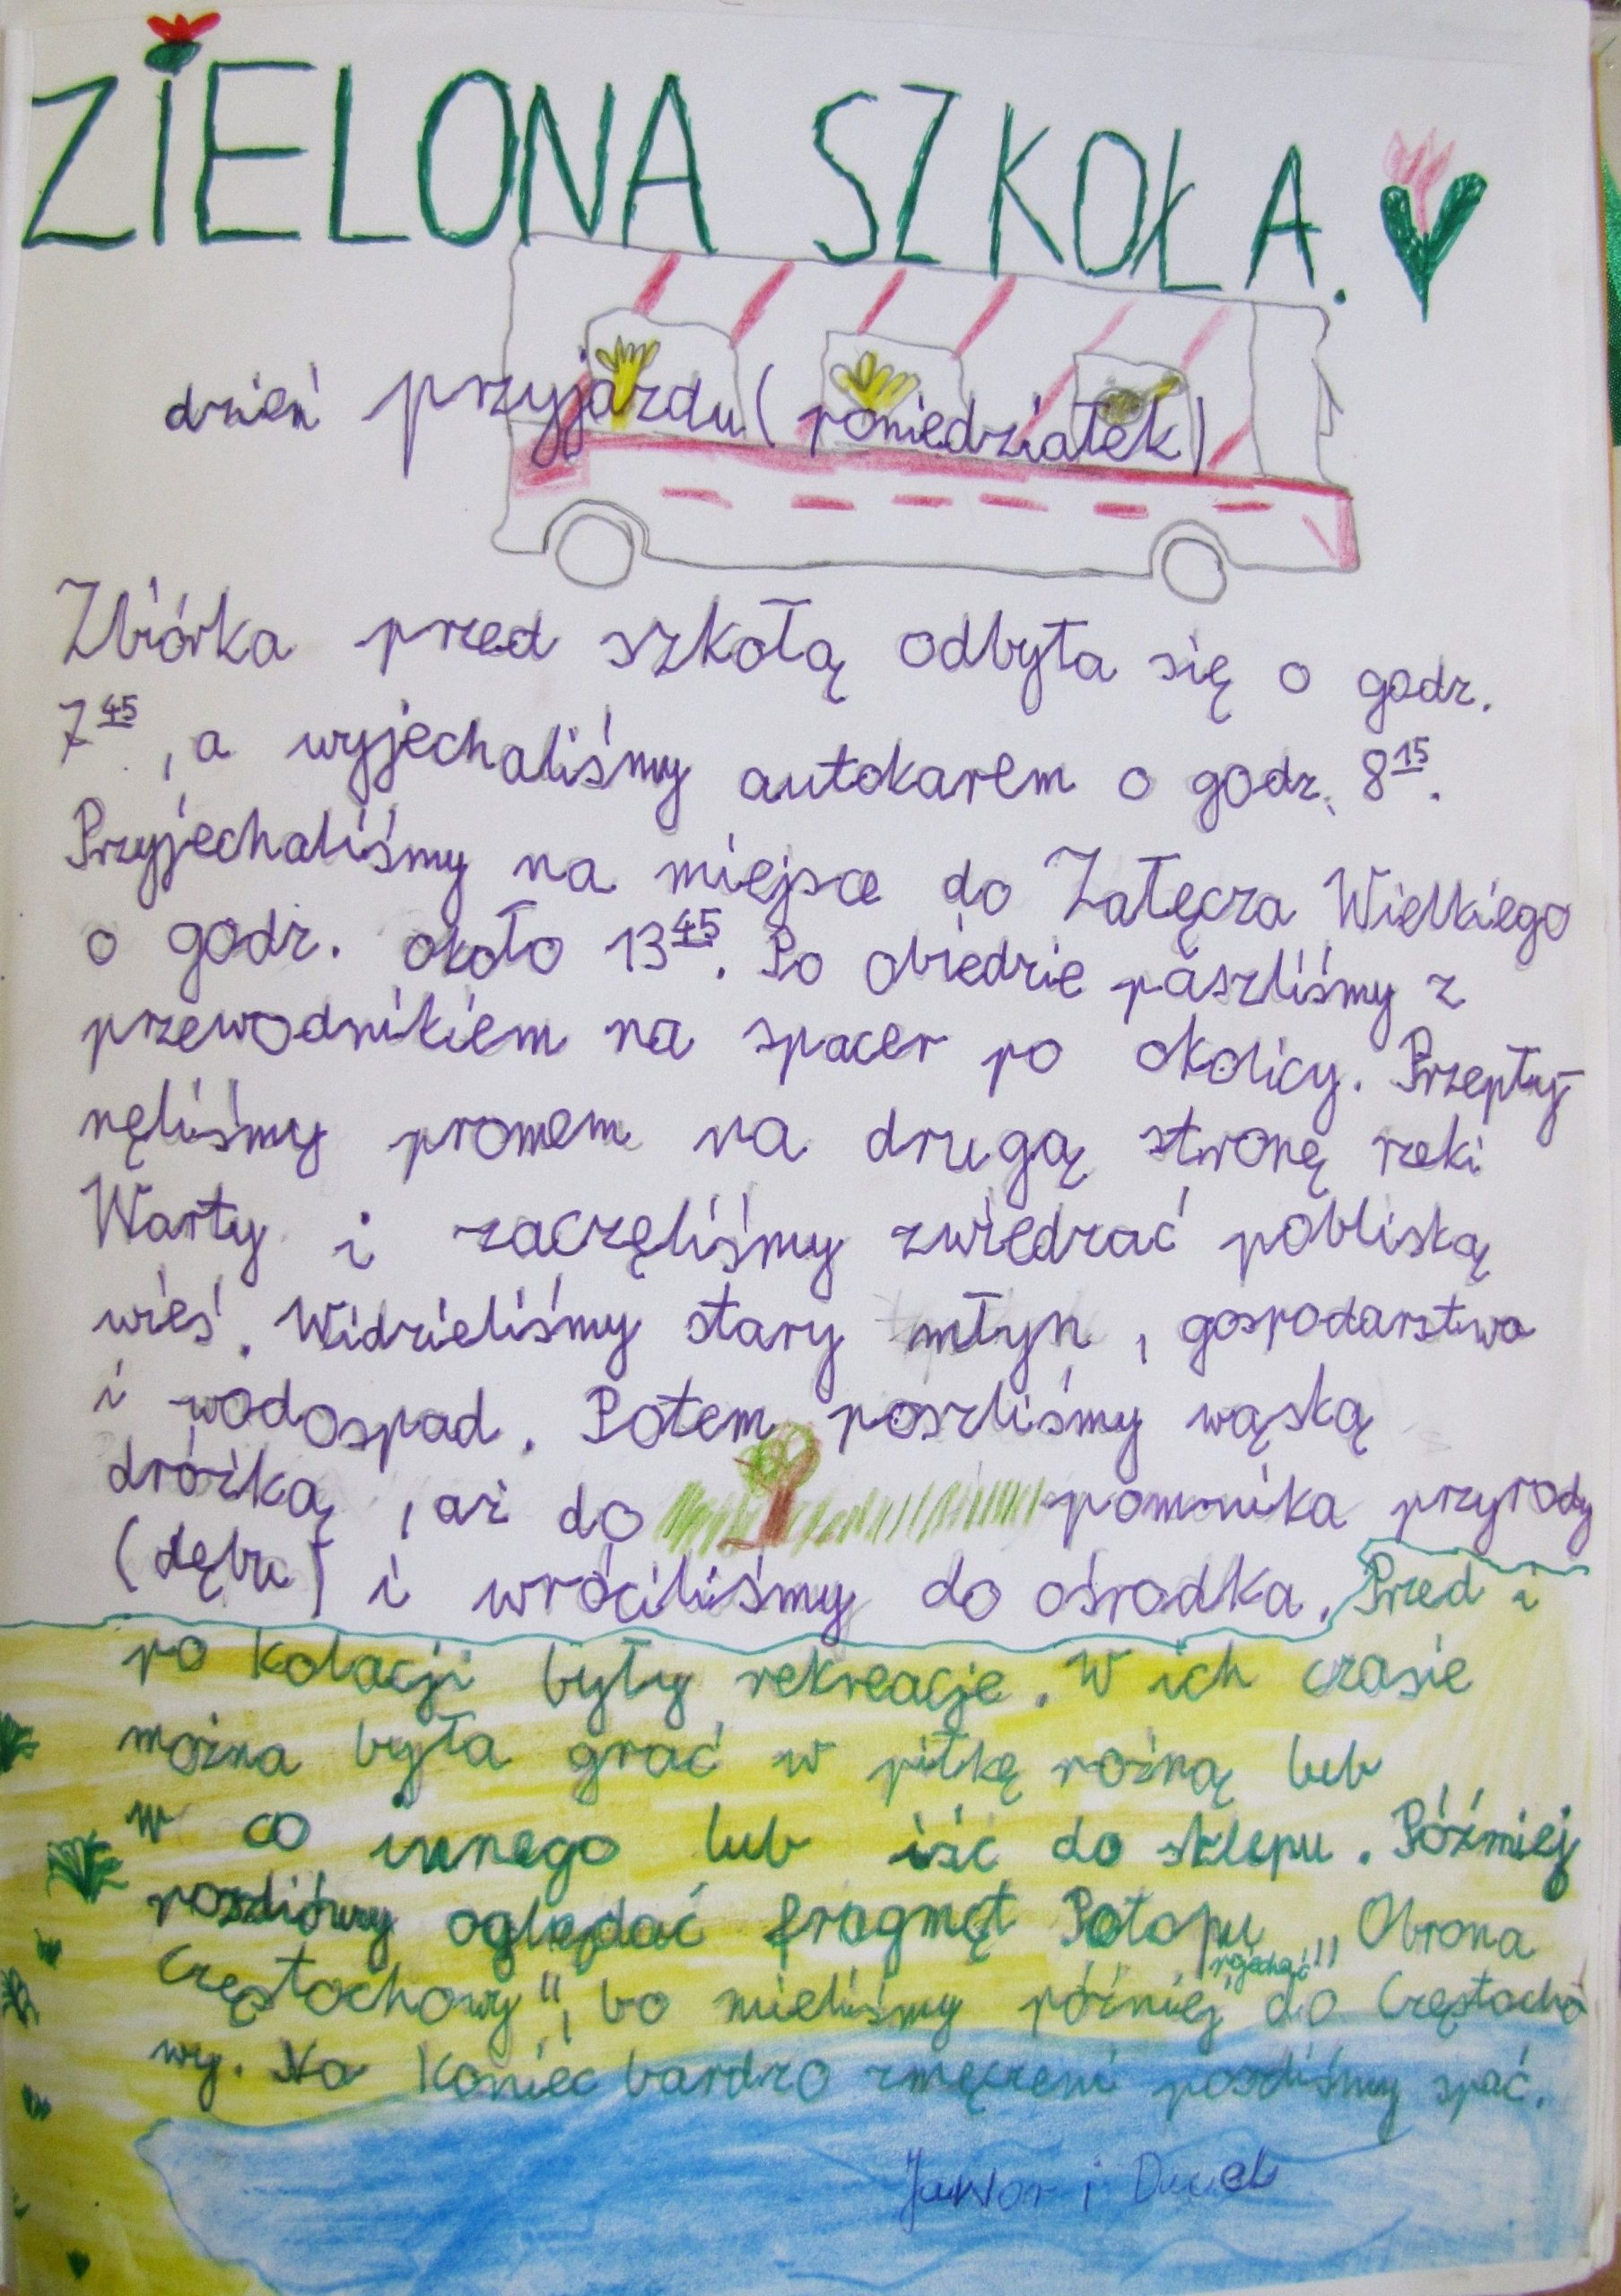 ZIELONA SZKOŁA.
dzień przyjazdu (poniedziałek)
Zbiórka przed szkołą odbyła się o godz.
7⁴⁵, a wyjechaliśmy autokarem o godz. 8¹⁵.
Przyjechaliśmy na miejsce do Załęcza Wielkiego
o godz. około 13⁴⁵. Po obiedzie poszliśmy z
przewodnikiem na spacer po okolicy. Przepły-
nęliśmy promem na drugą stronę rzeki
Warty i zaczęliśmy zwiedzać pobliską
wieś. Widzieliśmy stary młyn, gospodarstwa
i wodospad. Potem poszliśmy wąską
dróżką, aż do pomnika przyrody
(dębu) i wróciliśmy do ośrodka. Przed i
po kolacji były rekreacje. W ich czasie
można była grać w piłkę nożną lub
w co innego lub iść do sklepu. Później
poszliśmy oglądać fragmęt Potopu „Obrona
Częstochowy", bo mieliśmy później pojechać do Częstocho
wy. Na koniec bardzo zmęczeni poszliśmy spać.
Jawor i